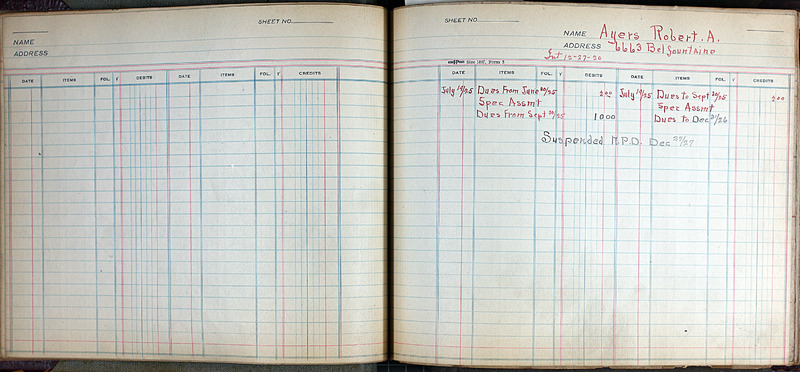 SHEET NO.
NAME
ADDRESS
DATE ITEMS FOL. √ DEBITS DATE ITEMS FOL. √ CREDITS
SHEET NO.
NAME Ayers Robert. A.
ADDRESS 6663 Belfountaine
Int 12-27-20
DATE ITEMS FOL. √ DEBITS DATE ITEMS FOL. √ CREDITS
July 14/25 Dues From June 30/25 2 00 July 14/25 Dues to Sept 30/25 2 00
Spec Assmt Spec Assmt
Dues From Sept 30/25 10 00 Dues to Dec 31/26
Suspended N.P.D. Dec 27/27